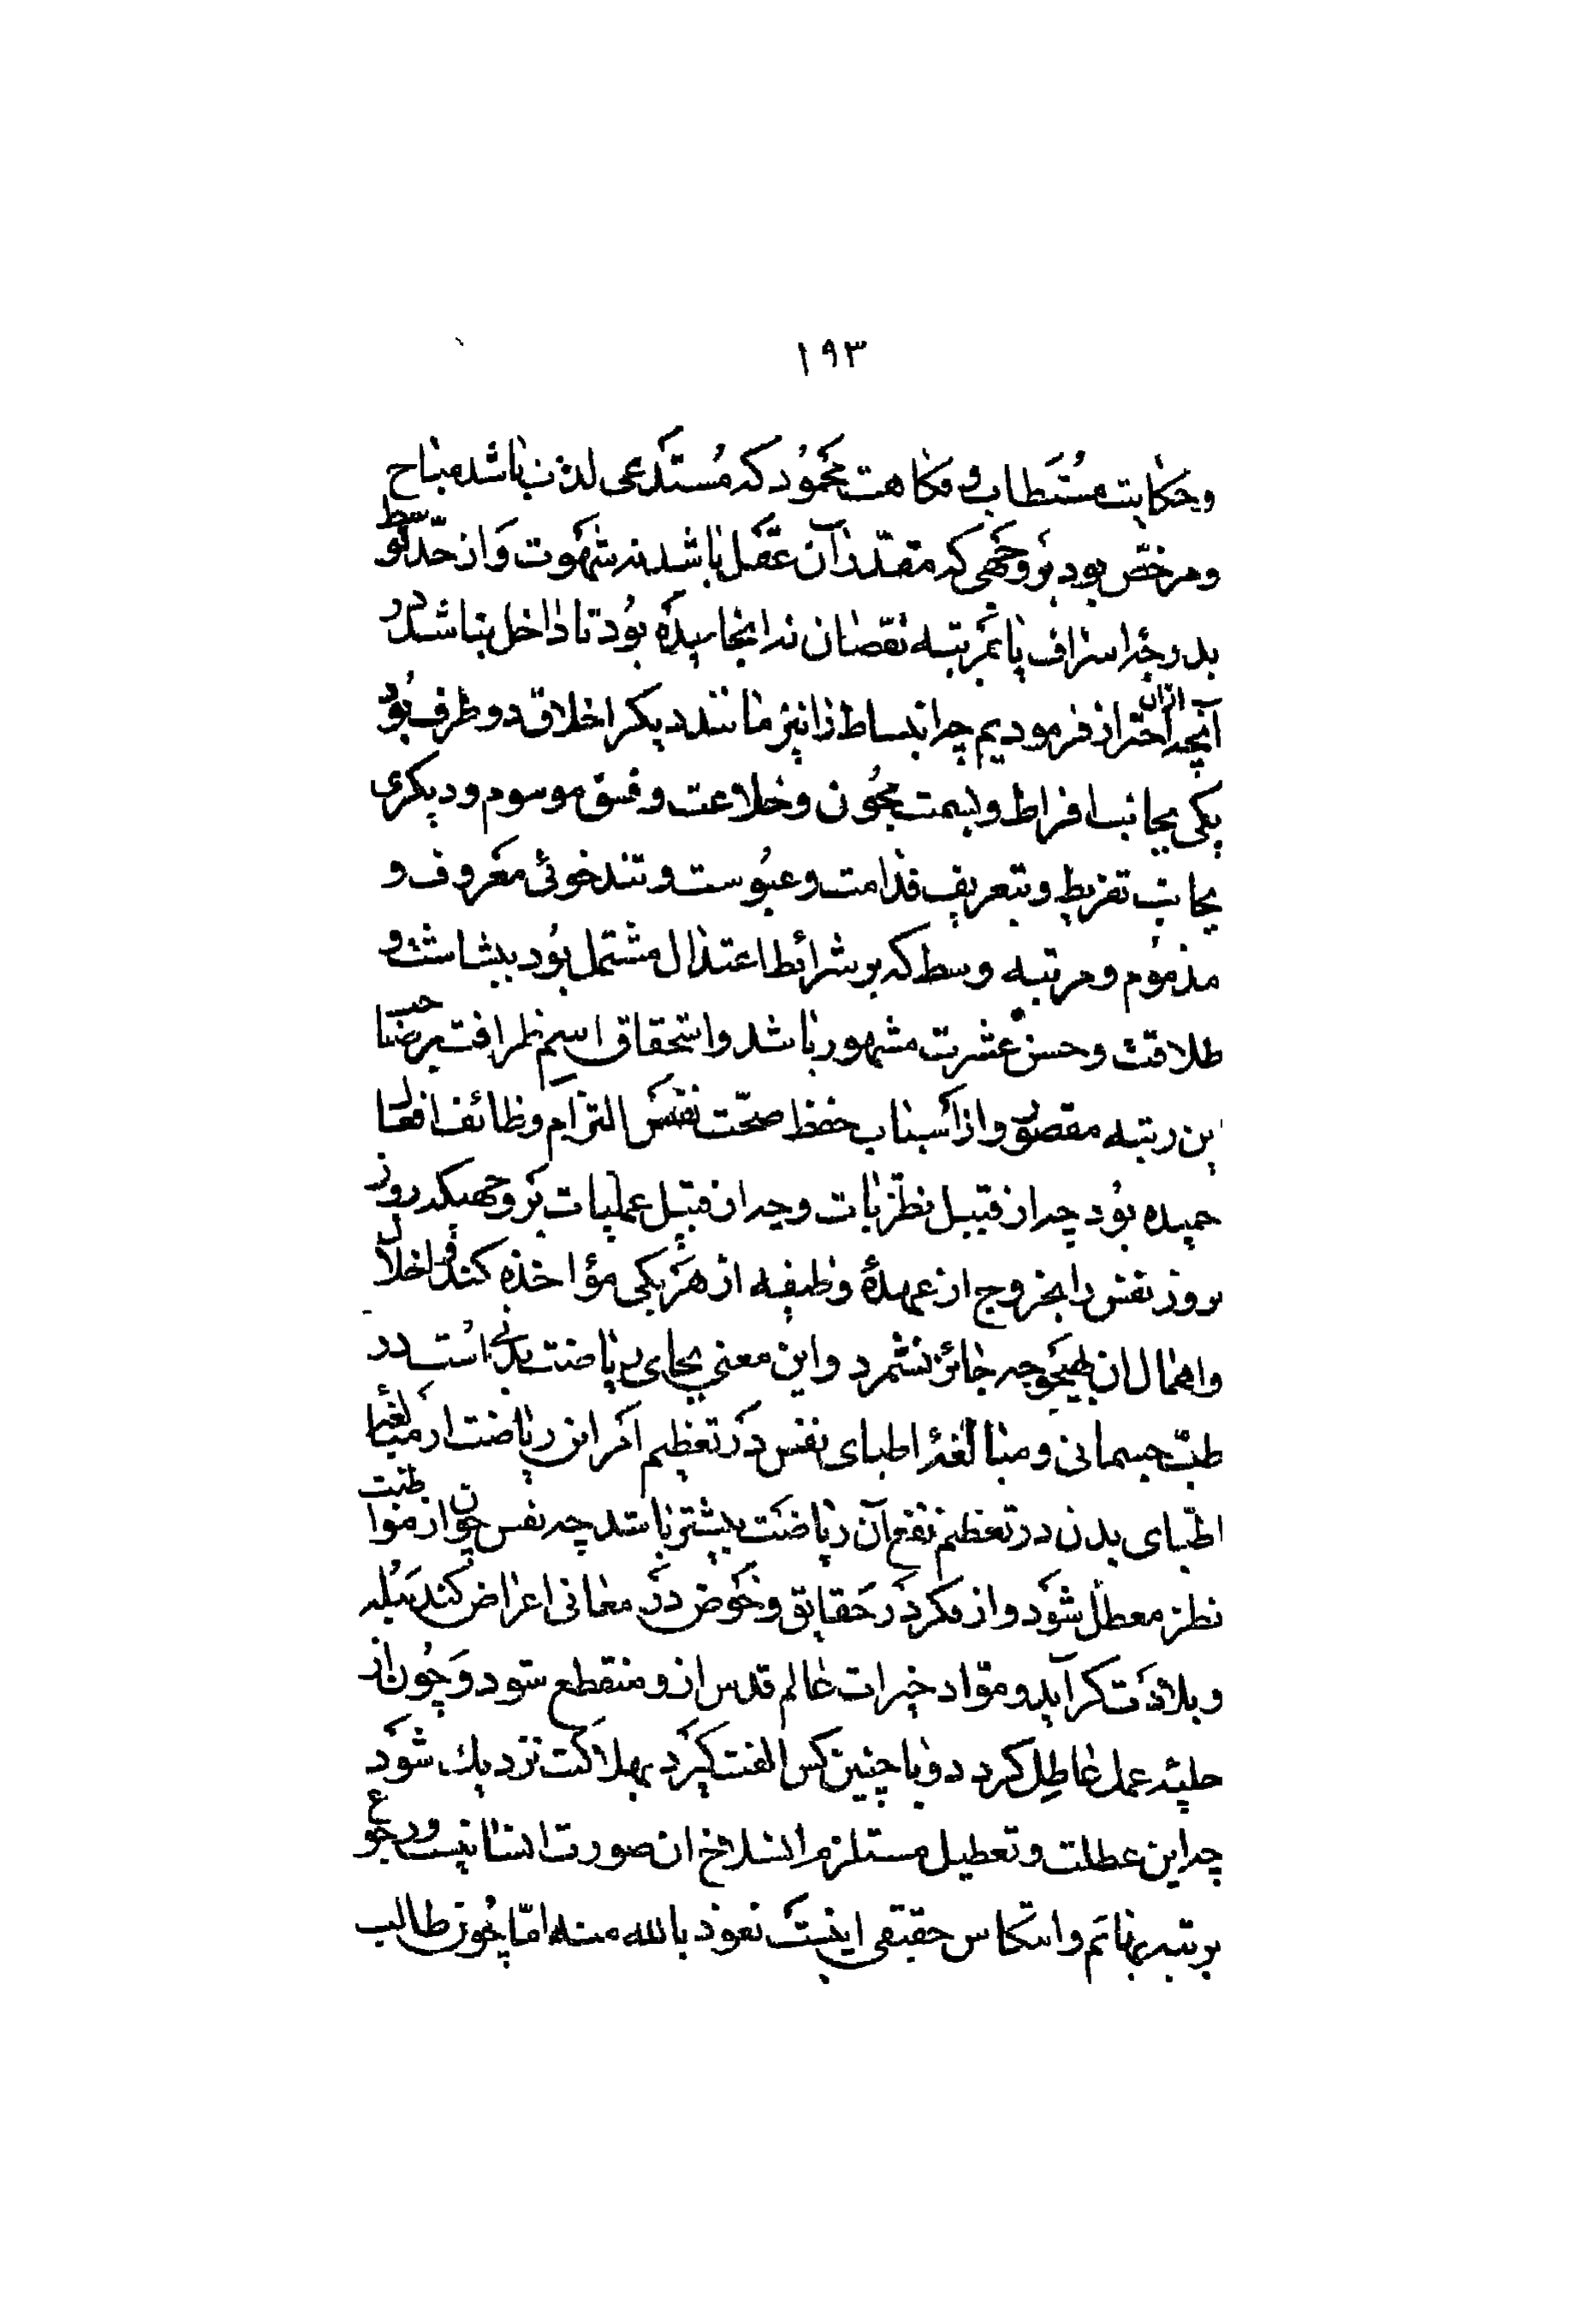 ۱۹۳
وحکایت مُستَطاب و فکاهت محَموُد که مُستَدعی لذّت باشد مباح
ومرخّص بود بر وجَهی که مقدّر آن عقَل باشد نه شهَوت وَاز حدّ توسط
بدرجهٔ اسراف یا بمَرتبه نقصان نه انجامیده بوُد تا داخل نباشد در
آنچه ازان احتراز فرمودیم چه انبساط را نیز مانند دیکر اخلاق دو طرف بُود
یکی بجانب افراط وبسمت مجُون وخلاعت وفسق موسوم ودیکری
بجانب تفریط وبتعریف فدامت وعبُوست وتندخوئی معَروف و
مذموُم ومرتبه وسط که بر شرائط اعتدال مشتمل بوُد ببشاشت و
طلاقت وحسن عشرت مشهور باشد واستحقاق اسم ظرافت بر صاحب
این رتبه مقصور واز اسَباب حفظ صحّت نفَس التزام وظائف افعال
حمیده بوُد چه از قبیل نظَریات وچه از قبیل عملیات برَ وجَهیکه روز
بروز نفس را بخروج از عهدهٔ وظیفه از هرَ یکی مؤاخذه کند و اخلال
واهمال ان بهیچوجه جائز نشمرد واین معنی بجای ریاضت بدنی است در
طبّ جسمانی ومبالغهٔ اطبای نفس در تعظیم امَر این ریاضت از مبالغهٔ
اطبّای بدن در تعظیم نفع آن ریاضَت بیشتر باشد چه نفس چون از مواظبت
نظر معطّل شوَد واز فکر درَ حَقایق وخَوض در معانی اعراض کند ببله
وبلادَت کراید ومَوّاد خیرات عالم قدس از و منقطع شود وَچُون از
حلیهٔ عمل عاطِل کردد وبا چنین کس الفت کیرَد بهلاکت نزدیك شوَد
چه این عطلت وتعطیل مستلزم انسلاخ از صورت انسانیست ورجوع
برتبه بهائم وانتکاس حقیقی اینست نعوذ بالله منه امّا چُون طالب